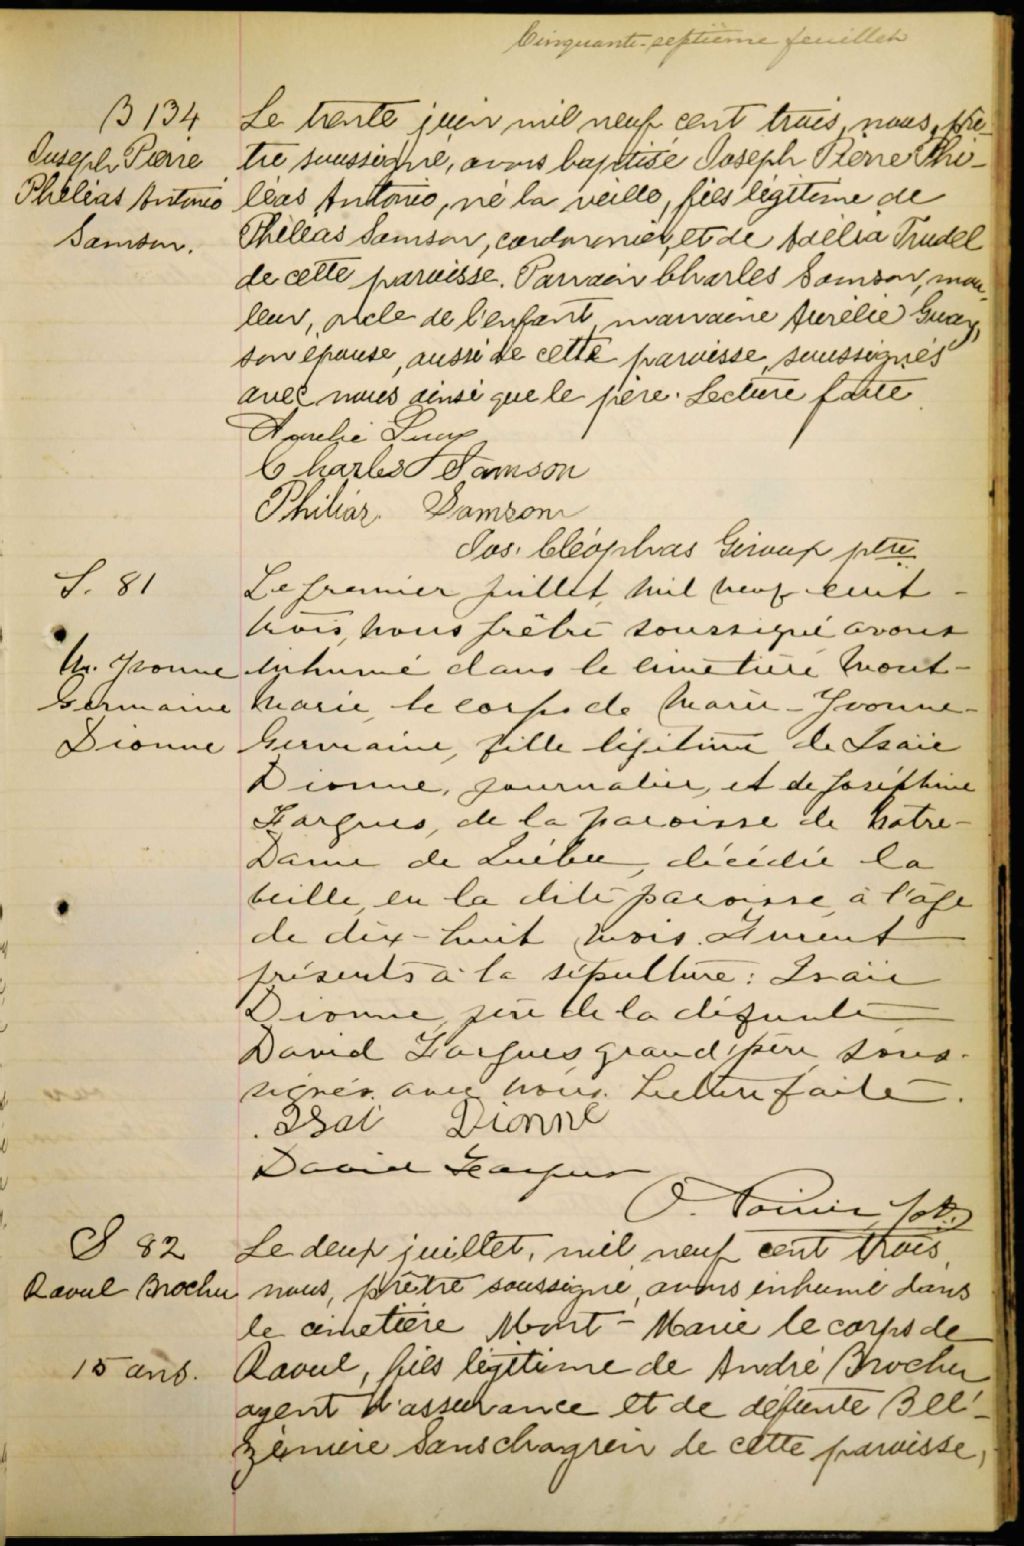 Cinquante-septième feuillet
B 134
Joseph Pierre
Philéas Antonio
Samson.
Le trente juin mil neuf cent trois, nous, prê-
tre soussigné, avons baptisé Joseph Pierre Phi-
léas Antonio, né la veille, fils légitime de
Philéas Samson, cordonnier, et de Adélia Trudel
de cette paroisse. Parrain Charles Samson, mou-
leur, oncle de l'enfant, marraine Aurélie Guay,
son épouse, aussi de cette paroisse, soussignés
avec nous ainsi que le père. Lecture faite
Aurelie Guay
Charles Samson
Philias Samson
Jos. Cléophas Giroux ptre
S. 81
M. Yvonne
Germaine
Dionne
Le premier juillet, mil neuf cent -
trois, nous prêtre soussigné avons
inhumé dans le cimetière Mont-
Marie, le corps de Marie-Yvonne-
Germaine, fille légitime de Isaïe
Dionne, journalier, et de Joséphine
Fargues, de la paroisse de Notre-
Dame de Québec, décédée la
veille, en la dite paroisse, à l'âge
de dix-huit mois. Furent
présents à la sépulture: Isaïe
Dionne, père de la défunte
David Fargues grand'père, sous-
signés avec nous. Lecture faite.
Isaï Dionne
David Fargues
O. Poirier, ptr.
S 82
Raoul Brochu
15 ans.
Le deux juillet, mil neuf cent trois,
nous, prêtre soussigné, avons inhumé dans
le cimetière Mont-Marie le corps de
Raoul, fils légitime de André Brochu
agent d'assurance et de défunte Bell'-
zémire Sanschagrin de cette paroisse,